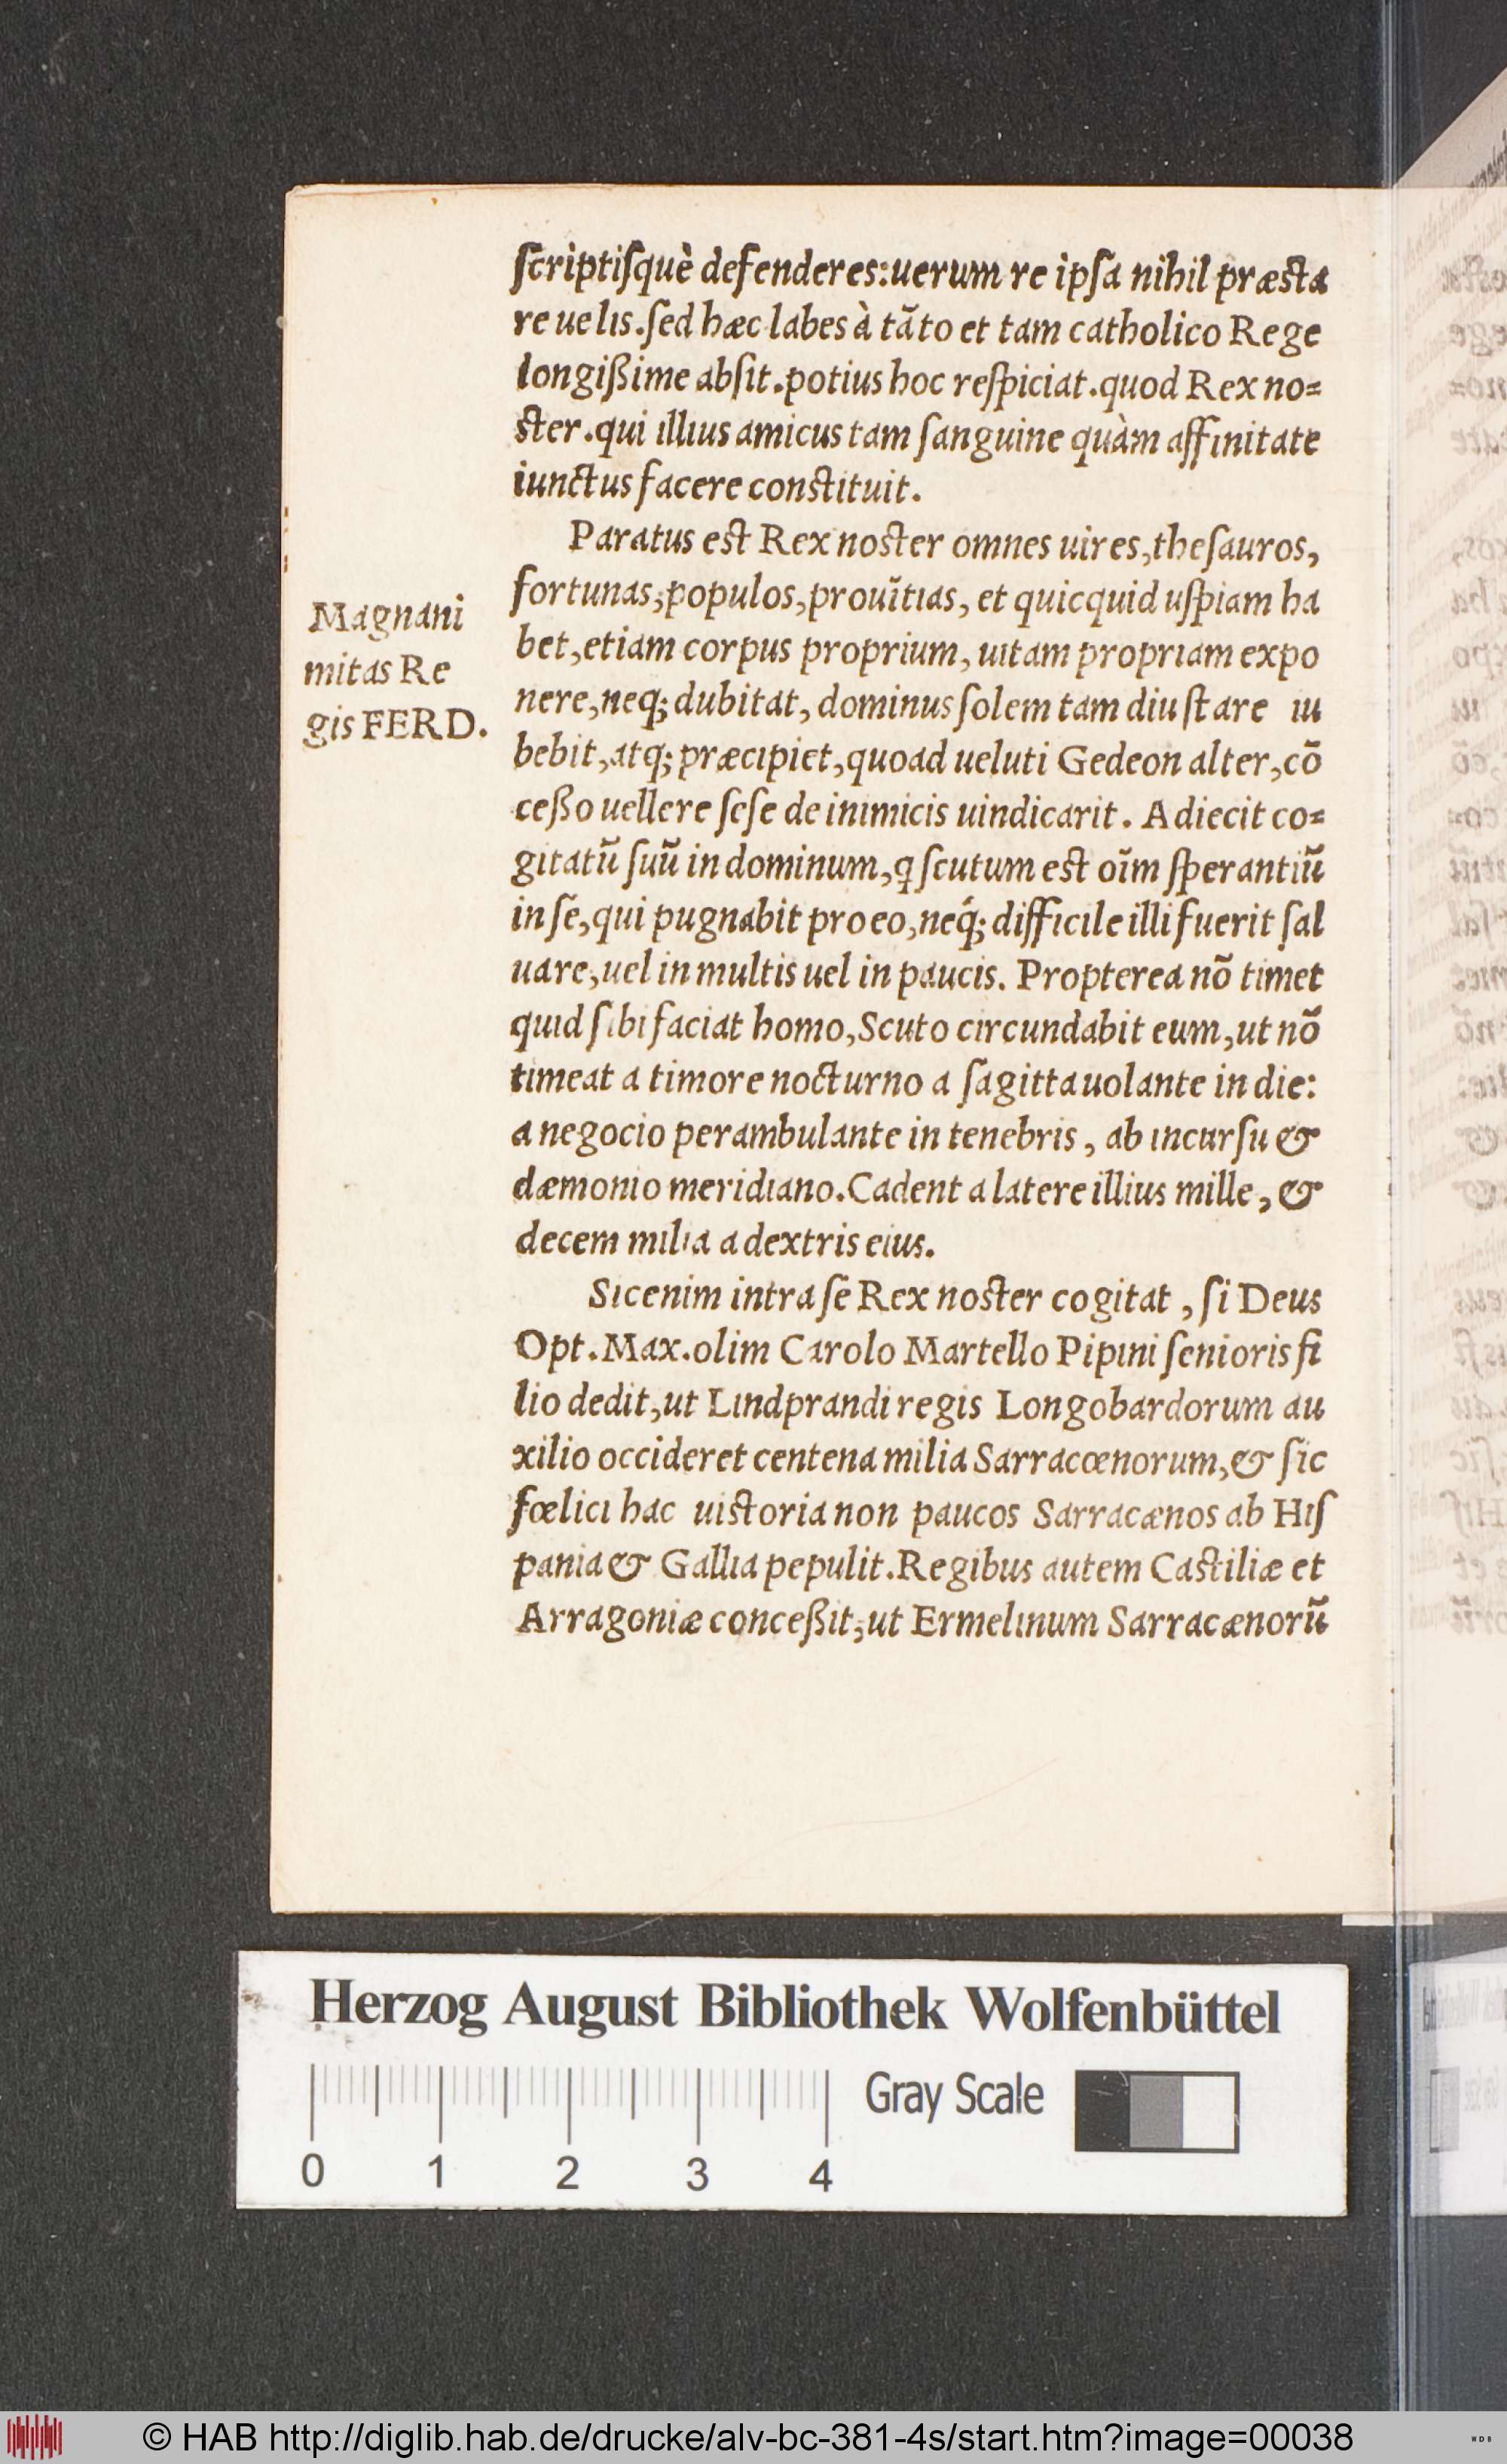 ſcriptiſquè defenderes:uerum re ipſa nihil præſta
re uelis.ſed hæc labes à tãto et tam catholico Rege
longißime abſit.potius hoc reſpiciat.quod Rex no=
ſter.qui illius amicus tam ſanguine quàm affinitate
iunctus facere conſtituit.
Paratus eſt Rex noſter omnes uires,theſauros,
fortunas,populos,prouĩtias, et quicquid uſpiam ha
bet,etiam corpus proprium, uitam propriam expo
nere,neq; dubitat, dominus ſolem tam diu ſtare iu
bebit,atq; præcipiet,quoad ueluti Gedeon alter,cõ
ceßo uellere ſeſe de inimicis uindicarit. Adiecit co=
gitatũ ſuũ in dominum,ꝗ ſcutum eſt oĩm ſperantiũ
in ſe,qui pugnabit pro eo,neq́; difficile illi fuerit ſal
uare,uel in multis uel in paucis. Propterea nõ timet
quid ſibi faciat homo,Scuto circundabit eum,ut nõ
timeat a timore nocturno a ſagitta uolante in die:
a negocio perambulante in tenebris, ab incurſu &
dæmonio meridiano.Cadent a latere illius mille, &
decem milia a dextris eius.
Sic enim intra ſe Rex noſter cogitat, ſi Deus
Opt.Max.olim Carolo Martello Pipini ſenioris fi
lio dedit,ut Lindprandi regis Longobardorum au
xilio occideret centena milia Sarracœnorum,& ſic
fœlici hac uiſtoria non paucos Sarracænos ab Hiſ
pania & Gallia pepulit.Regibus autem Caſtiliæ et
Arragoniæ conceßit,ut Ermelinum Sarracænorũ
Magnani
mitas Re
gis FERD.
Herzog August Bibliothek Wolfenbüttel
Gray Scale
0 1 2 3 4
© HAB http://diglib.hab.de/drucke/alv-bc-381-4s/start.htm?image=00038